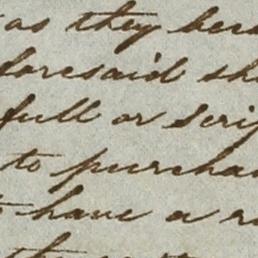 as they bec
foresaid sh
full or Scrip
to purcha
to have a r